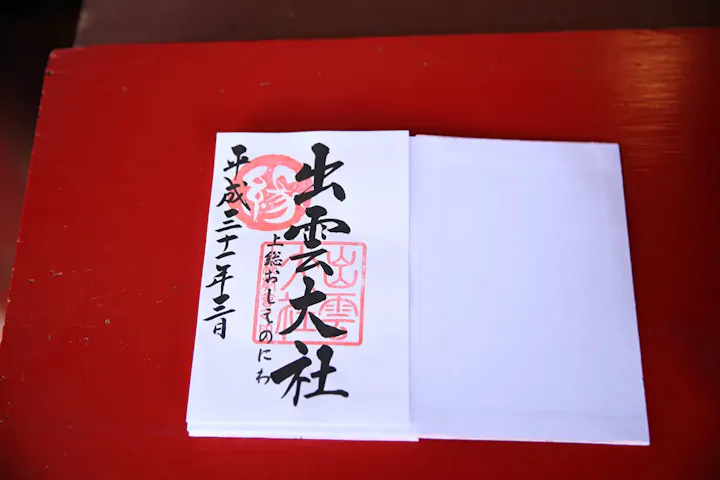 出雲大社
上総おしえのにわ
平成三十一年三日
縁
出雲
大社